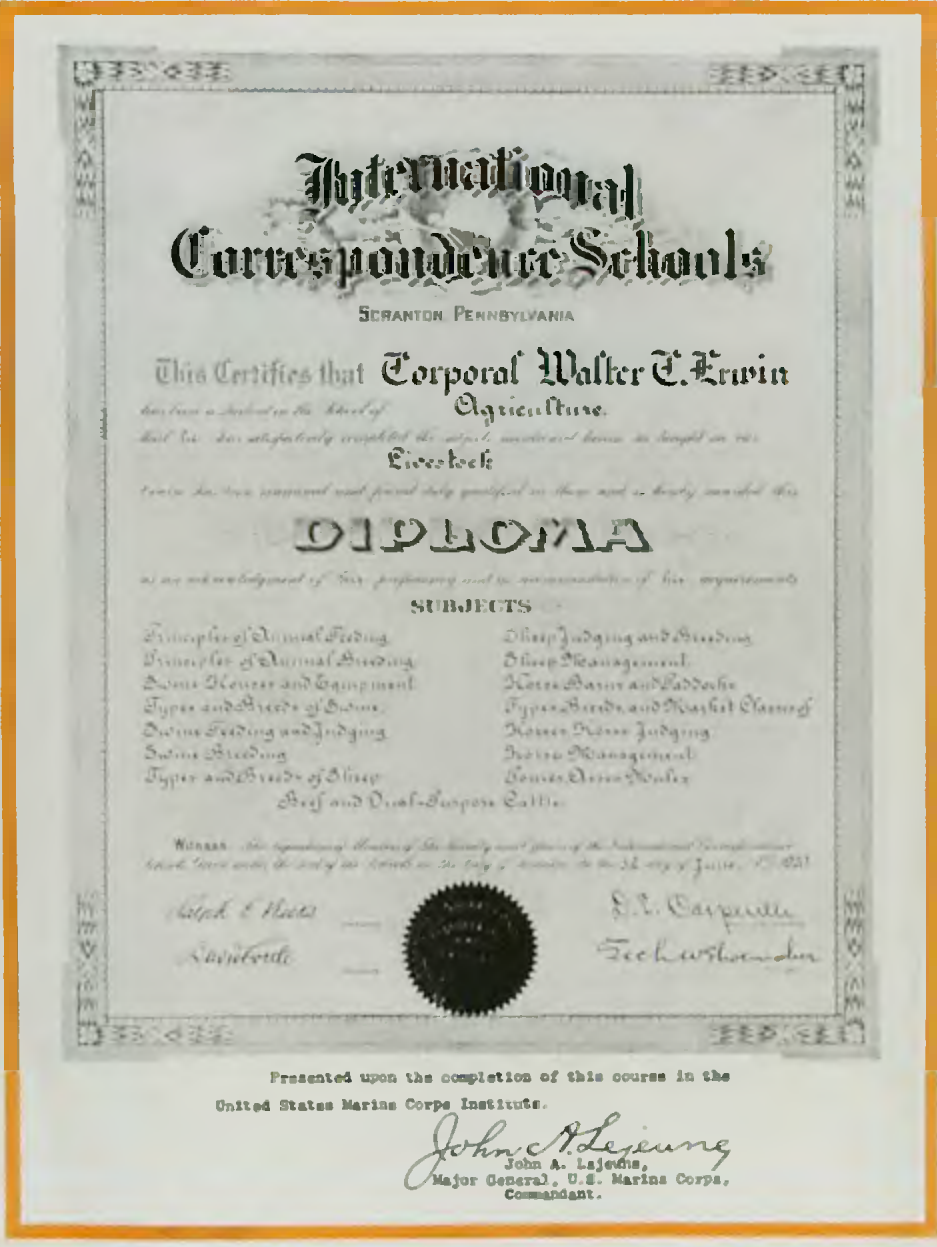 International
Correspondence Schools
SCRANTON PENNSYLVANIA
This Certifies that Corporal Walter T. Erwin
has been a student in the School of Agriculture.
that he has satisfactorily completed the subjects mentioned herein as taught in our
Livestock
Course has been examined and found duly qualified in them and is hereby awarded this
DIPLOMA
as an acknowledgment of his proficiency and in commendation of his acquirements
SUBJECTS
Principles of Animal Feeding
Principles of Animal Breeding
Swine Houses and Equipment
Types and Breeds of Swine
Swine Feeding and Judging
Swine Breeding
Types and Breeds of Sheep
Sheep Judging and Breeding
Sheep Management
Horse Barns and Paddocks
Types Breeds and Market Classes of
Horses Horse Judging
Horse Management
Ponies Asses Mules
Beef and Dual-Purpose Cattle
Witness the signatures of
day of June
Ralph E
D.E. Carpenter
Presented upon the completion of this course in the
United States Marine Corps Institute.
John A. Lejeune
John A. Lejeune,
Major General, U.S. Marine Corps,
Commandant.